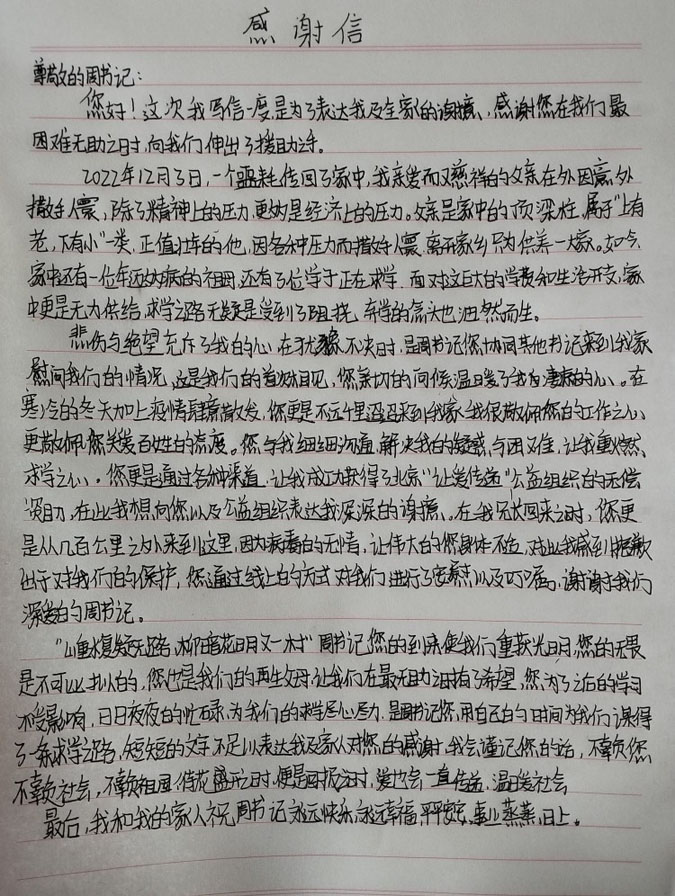 感谢信
尊敬的周书记：
您好！这次我写信一度是为了表达我及全家的谢意、感谢您在我们最
困难无助之时，向我们伸出了援助之手。
2022年12月3日，一个噩耗传回了家中，我亲爱而又慈祥的父亲在外因意外
撒手人寰，除了精神上的压力，更的是经济上的压力。父亲是家中的顶梁柱，属于“上有
老，下有小”一类，正值壮年的他，因各种压力而撒手人寰，离开家乡只为供养一大家。如今，
家中还有一位年迈为病的祖母，还有3位学子正在求学，面对这巨大的学费和生活开支，家
中更是无力供给，求学之路无疑是受到了阻挠，弃学的念头也油然而生。
悲伤与绝望充斥了我的心，在犹豫不决时，是周书记您协同其他书记来到我家
慰问我们的情况，这是我们的首次相见，您亲切的问候温暖了我的心。在
寒冷的冬天加上疫情肆意散发，您更是不远千里迢迢来到我家，我很敬佩您的工作之心，
更敬佩您关爱百姓的态度。您与我细细沟通，解决我的疑惑与困难，让我重燃
求学之心。您更是通过各种渠道，让我成功获得了北京“让爱传递”公益组织的无偿
资助，在此我想向您以及公益组织表达我深深的谢意。在我兄长回来之时，您更
是从几百公里之外来到这里，因为病毒的无情，让伟大的您身体不适，对此我感到抱歉，
出于对我们的保护，您通过线上的方式对我们进行了安慰以及叮嘱，谢谢我们
深爱的周书记。
“山重水复疑无路，柳暗花明又一村”周书记您的到来使我们重获光明，您的无畏
是不可比拟的，您也是我们的再生父母，让我们在最无助之时有了希望，您为了之后的学习
不受影响，日日夜夜的忙碌，为我们的求学尽心尽力，是周书记您用自己的时间为我们谋得
了一条求学之路，短短的文字不足以表达我及家人对您的感谢，我会谨记您的话，不辜负您，
不辜负社会，不辜负祖国，待花盛开之时，便是回报之时，爱也会一直传递，温暖社会
最后，我和我的家人祝周书记永远快乐，永远幸福，平平安安，事业蒸蒸日上。